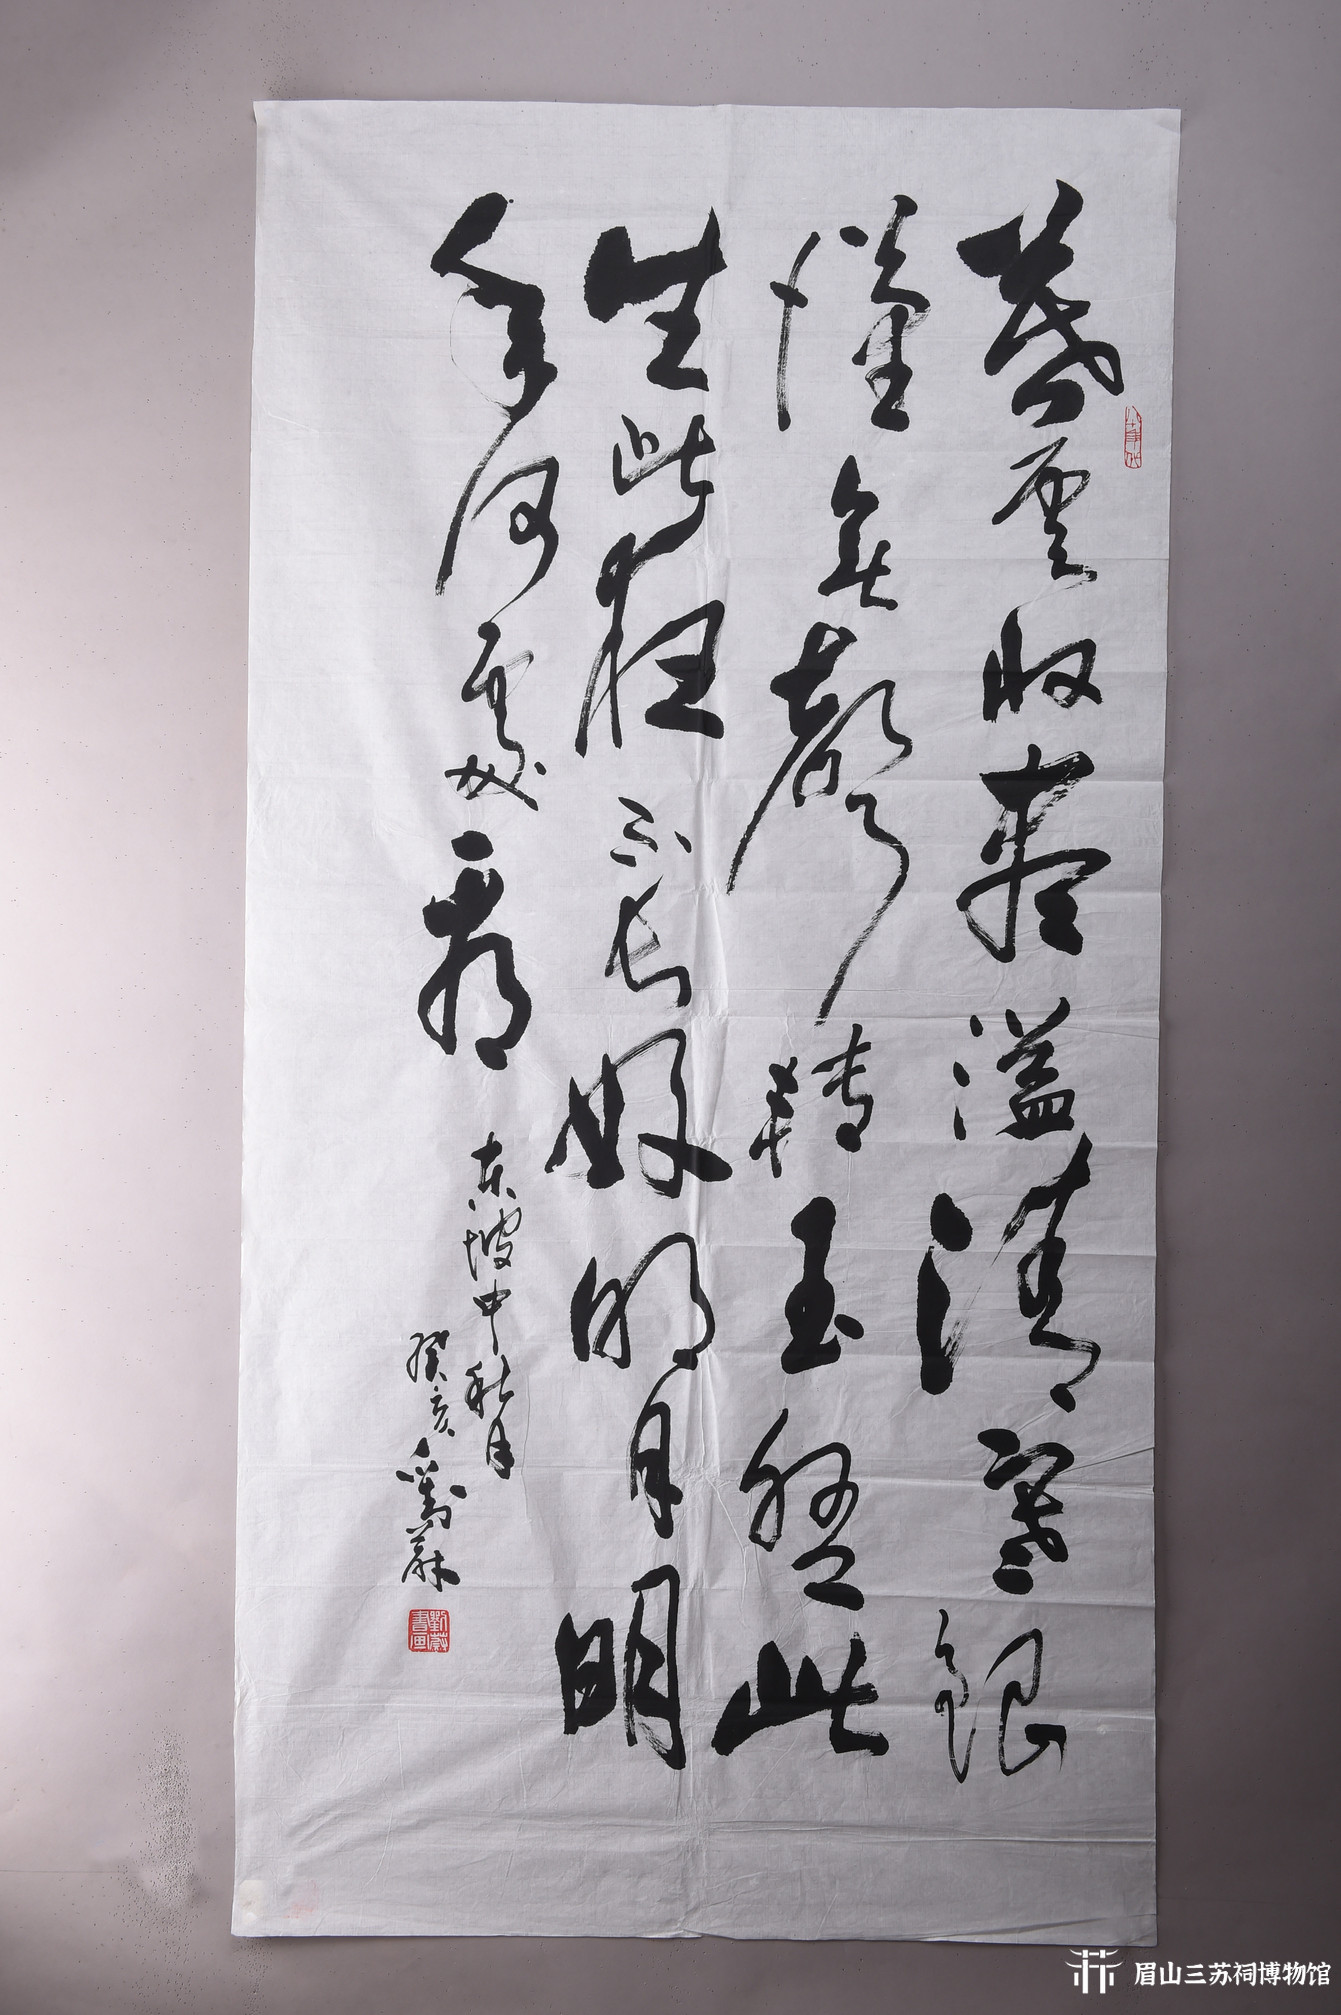 暮雲收盡溢清寒銀
漢無聲轉玉盤此
生此夜不長好明月明
年何處看
東坡中秋月
癸亥 劉
八十年代
眉山三苏祠博物馆